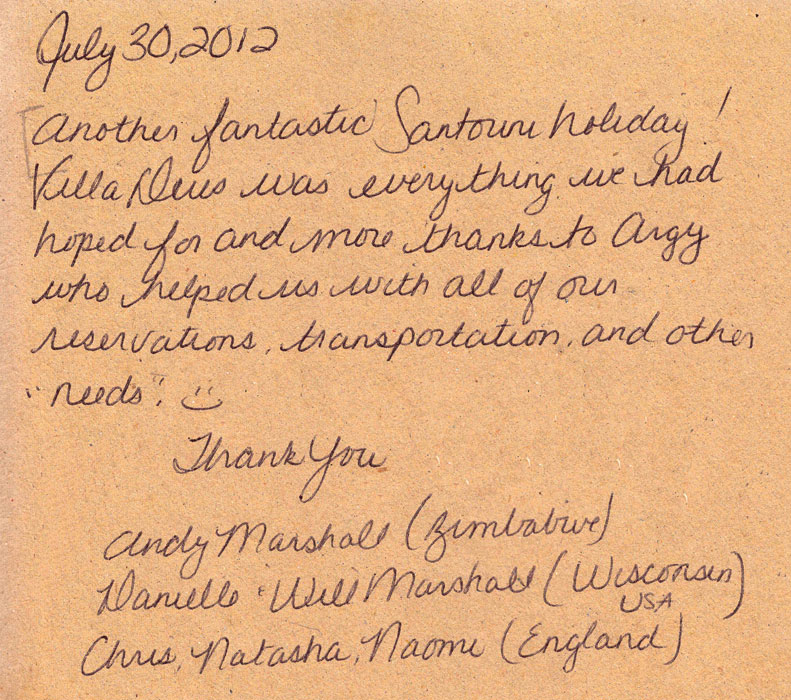 July 30, 2012
Another fantastic Santorini holiday!
Villa Deus was everything we had
hoped for and more thanks to Argy
who helped us with all of our
reservations, transportation, and other
"needs". :)
Thank You
Andy Marshall (Zimbabwe)
Danielle + Will Marshall (Wisconsin)
USA
Chris, Natasha, Naomi (England)